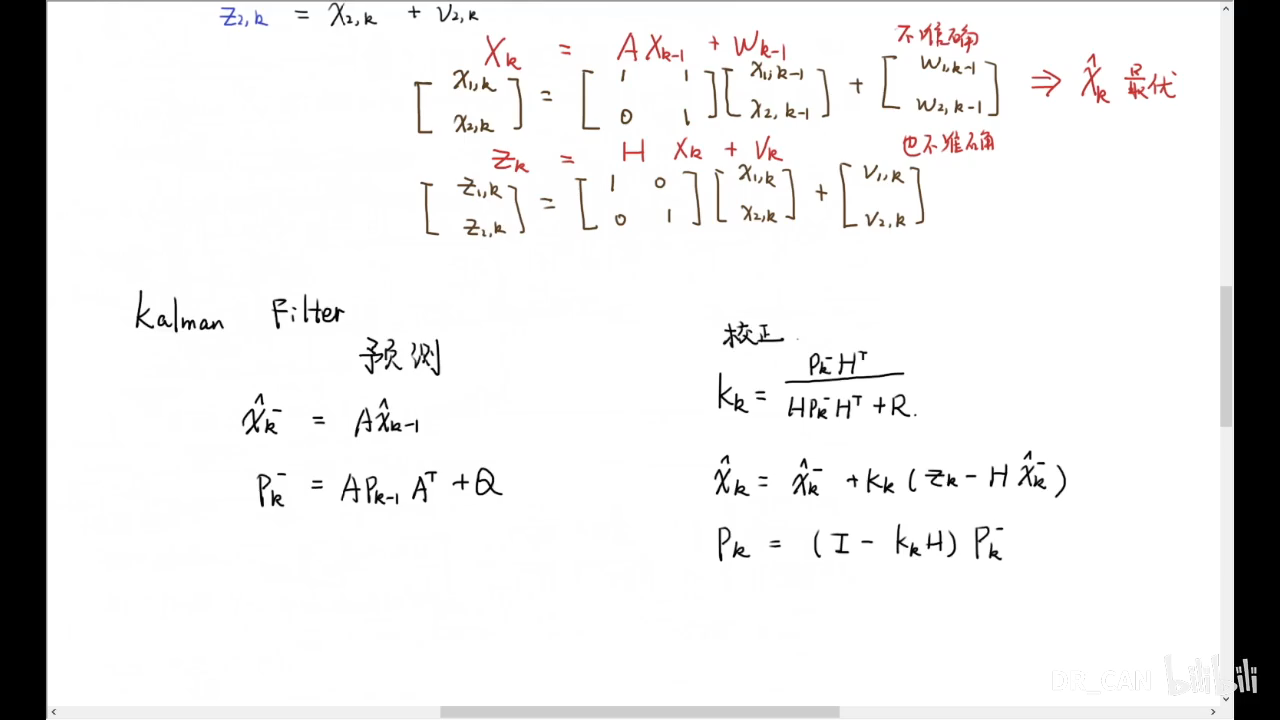 z₂,ₖ = x₂,ₖ + v₂,ₖ
Xₖ = A Xₖ₋₁ + Wₖ₋₁ 不准确
[x₁,ₖ; x₂,ₖ] = [1 1; 0 1] [x₁,ₖ₋₁; x₂,ₖ₋₁] + [w₁,ₖ₋₁; w₂,ₖ₋₁] ⇒ X̂ₖ 最优
Zₖ = H Xₖ + Vₖ 也不准确
[z₁,ₖ; z₂,ₖ] = [1 0; 0 1] [x₁,ₖ; x₂,ₖ] + [v₁,ₖ; v₂,ₖ]
Kalman Filter
预测
x̂ₖ⁻ = Ax̂ₖ₋₁
Pₖ⁻ = APₖ₋₁Aᵀ + Q
校正
Kₖ = Pₖ⁻Hᵀ / (HPₖ⁻Hᵀ + R)
x̂ₖ = x̂ₖ⁻ + Kₖ(zₖ - Hx̂ₖ⁻)
Pₖ = (I - KₖH) Pₖ⁻
DR_CAN bilibili